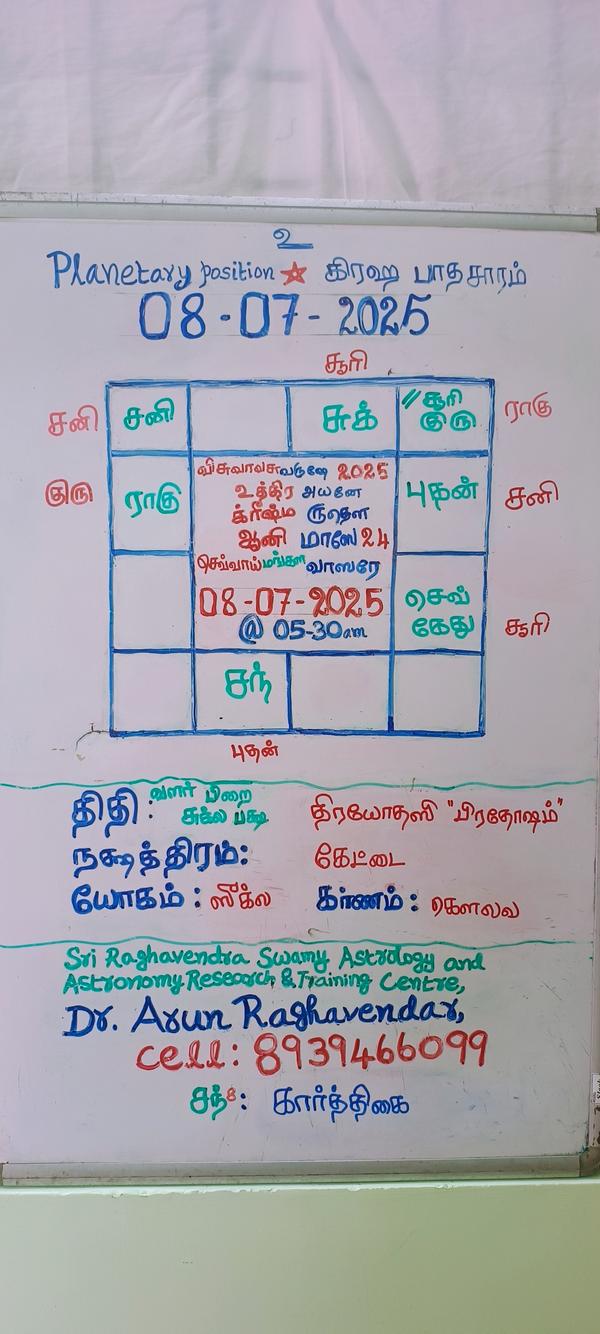 உ
Planetary position ☆ கிரஹ பாதசாரம்
08-07-2025
சூரி
சனி சனி சுக் // சூரி ராகு
குரு
விசுவாவசுவருஷே 2025
குரு ராகு உத்திர அயனே புதன் சனி
க்ரீஷ்ம ருதௌ
ஆனி மாஸே 24
செவ்வாய் மங்கள வாஸரே
08-07-2025 செவ்
@ 05-30am கேது சூரி
சந்
புதன்
திதி : வளர் பிறை திரயோதஸி "பிரதோஷம்"
சுக்ல பக்ஷ
நக்ஷத்திரம்: கேட்டை
யோகம் : ஸீக்ல கர்ணம் : கௌலவ
Sri Raghavendra Swamy Astrology and
Astronomy Research & Training Centre,
Dr. Arun Raghavendar,
cell: 8939466099
சந் 8: கார்த்திகை